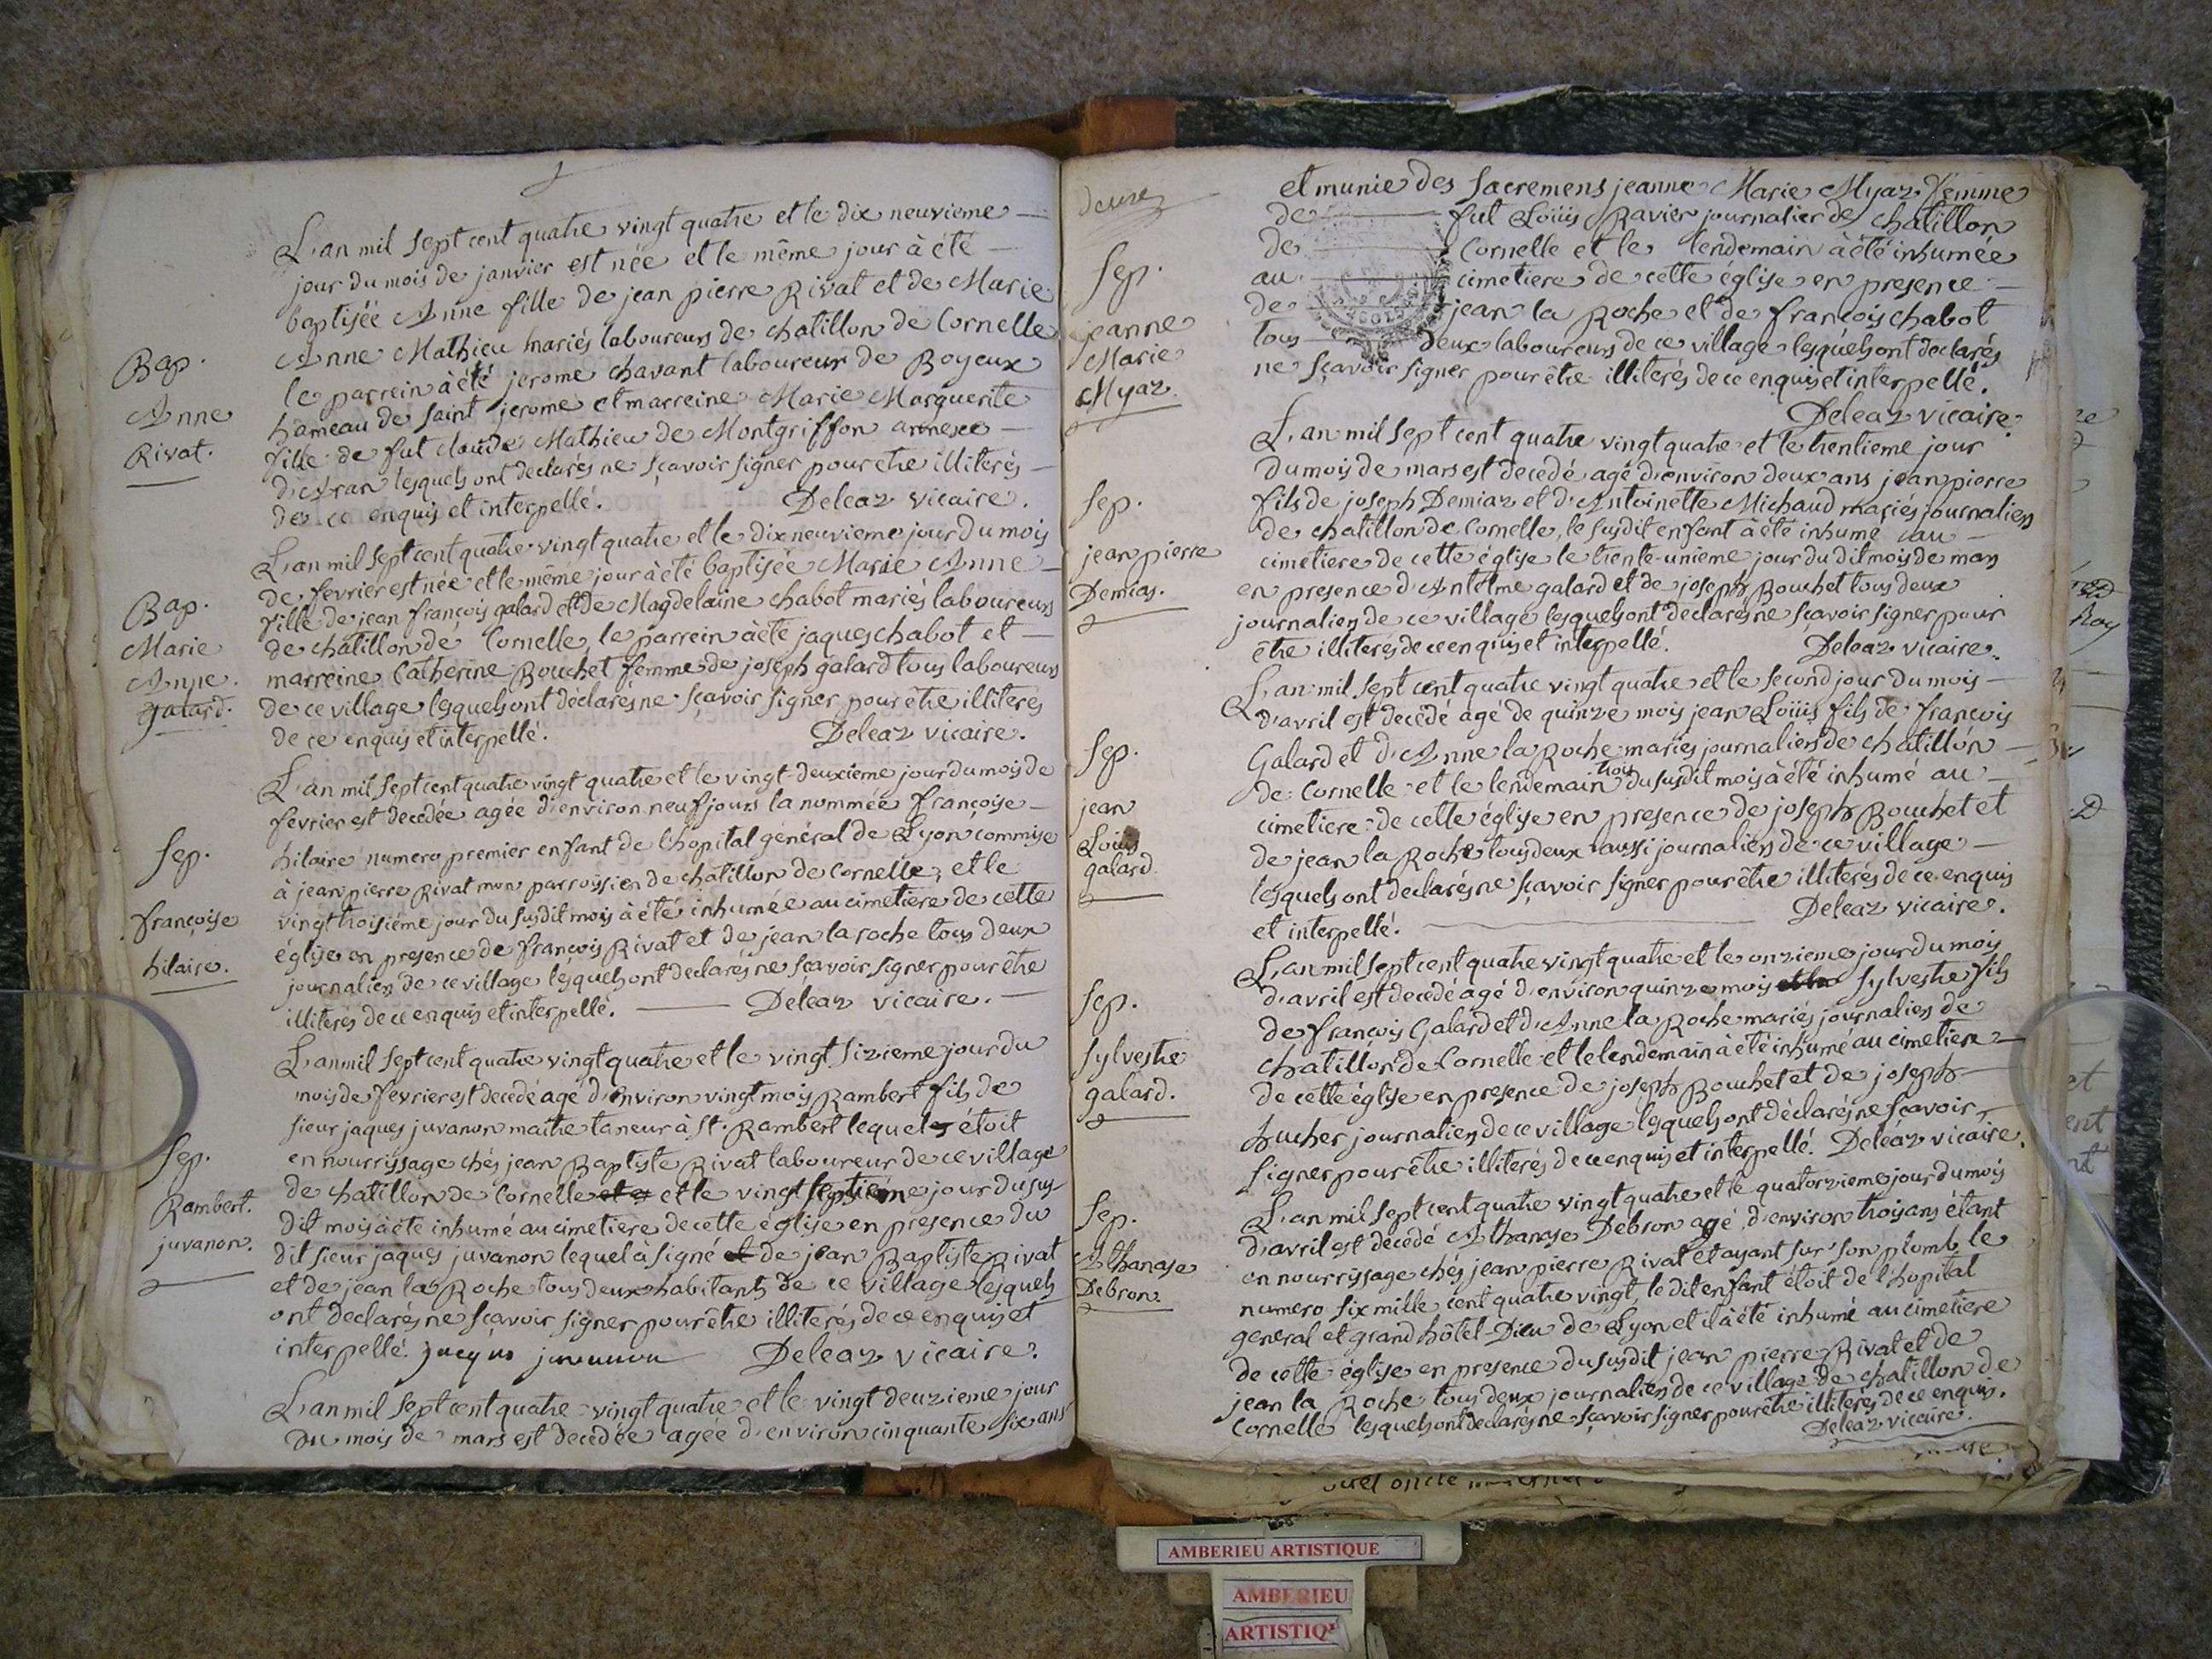 L'an mil sept cent quatre vingt quatre et le dix neuvieme
jour du mois de janvier est née et le même jour à été
baptisée Anne fille de jean pierre Rivat et de Marie
Bap.
Anne
Rivat.
Anne Mathieu mariés laboureurs de chatillon de Cornelle
le parrein à été jerome chavant laboureur de Boyeux
hameau de saint jerome et marreine Marie Marguerite
fille de fut claude Mathieu de Montgriffon annexe
d'Aran lesquels ont declarés ne sçavoir signer pour etre illiterés
de ce enquis et interpellé. Deleaz vicaire.
L'an mil sept cent quatre vingt quatre et le dixneuvieme jour du mois
de fevrier est née et le même jour à été baptisée Marie Anne
Bap.
Marie
Anne.
galard.
fille de jean françois galard et de Magdelaine chabot mariés laboureurs
de chatillon de Cornelle, le parrein à été jaques chabot et
marreine Catherine Bouchet femme de joseph galard tous laboureurs
de ce village lesquels ont déclarés ne sçavoir signer pour être illiterés
de ce enquis et interpellé. Deleaz vicaire.
L'an mil sept cent quatre vingt quatre et le vingt-deuxieme jour du mois de
fevrier est decedée agée d'environ neuf jours la nommée françoise
Sep.
françoise
hilaire.
hilaire numero premier enfant de l'hopital général de Lyon commise
à jean pierre Rivat mon parroissien de chatillon de Cornelle, et le
vingt troisiéme jour du susdit mois à été inhumée au cimetiere de cette
église en presence de françois Rivat et de jean la roche tous deux
journaliers de ce village lesquels ont declarés ne sçavoir signer pour être
illiterés de ce enquis et interpellé. Deleaz vicaire.
L'an mil sept cent quatre vingt quatre et le vingt sizieme jour du
mois de fevrier est decedé agé d'environ vingt mois Rambert fils de
sieur jaques juvanon maitre taneur à St. Rambert lequel étoit
Sep.
Rambert.
juvanon.
en nourrissage chés jean Baptiste Rivat laboureur de ce village
de chatillon de Cornelle et le vingt septiéme jour du sus-
dit mois à été inhumé au cimetiere de cette église en presence du
dit sieur jaques juvanon lequel à signé de jean Baptiste Rivat
et de jean la Roche tous deux habitants de ce village lesquels
ont declarés ne sçavoir signer pour être illiterés de ce enquis et
interpellé. jacques juvanon Deleaz vicaire.
L'an mil sept cent quatre vingt quatre et le vingt deuzieme jour
du mois de mars est decedée agée d'environ cinquante six ans
deuxe
Sep.
jeanne
Marie
Myaz.
et munie des sacremens jeanne Marie Myaz femme
de fut Loüis Ravier journalier de chatillon
de Cornelle et le lendemain à été inhumée
au cimetiere de cette église en presence
de jean la Roche et de françois chabot
tous deux laboureurs de ce village lesquels ont declarés
ne sçavoir signer pour être illiterés de ce enquis et interpellé.
Deleaz vicaire.
L'an mil sept cent quatre vingt quatre et le trentieme jour
du mois de mars est decedé agé d'environ deux ans jean pierre
Sep.
jean pierre
Demias.
fils de joseph Demiaz et d'Antoinette Michaud mariés journaliers
de chatillon de Cornelle, le susdit enfant à été inhumé au
cimetiere de cette église le trente-unieme jour du dit mois de mars
en presence d'Antelme galard et de joseph Bouchet tous deux
journaliers de ce village lesquels ont declarés ne sçavoir signer pour
être illiterés de ce enquis et interpellé. Deleaz vicaire.
L'an mil sept cent quatre vingt quatre et le second jour du mois
d'avril est decédé agé de quinze mois jean Loüis fils de françois
Sep.
jean
Loüis
galard.
Galard et d'Anne la Roche mariés journaliers de chatillon
de Cornelle et le lendemain trois du susdit mois à été inhumé au
cimetiere de cette église en presence de joseph Bouchet et
de jean la Roche tous deux aussi journaliers de ce village
lesquels ont declarés ne sçavoir signer pour être illiterés de ce enquis
et interpellé. Deleaz vicaire.
L'an mil sept cent quatre vingt quatre et le onzieme jour du mois
Sep.
Sylvestre
galard.
d'avril est decedé agé d'environ quinze mois et le Sylvestre fils
de françois Galard et d'Anne la Roche mariés journaliers de
chatillon de Cornelle et le lendemain à été inhumé au cimetiere
de cette église en presence de joseph Bouchet et de joseph
hucher journaliers de ce village lesquels ont déclarés ne sçavoir
signer pour être illiterés de ce enquis et interpellé. Deleaz vicaire.
L'an mil sept cent quatre vingt quatre et le quatorzieme jour du mois
Sep.
Athanase
Debron.
d'avril est decédé Athanase Debron agé d'environ trois ans étant
en nourrissage chés jean pierre Rivat et ayant sur son plomb le
numero six mille cent quatre vingt, le dit enfant étoit de l'hopital
general et grand hôtel-Dieu de Lyon et il à été inhumé au cimetiere
de cette église en presence du susdit jean pierre Rivat et de
jean la Roche tous deux journaliers de ce village de chatillon de
Cornelle lesquels ont declarés ne sçavoir signer pour être illiterés de ce enquis.
Deleaz vicaire.
AMBERIEU ARTISTIQUE
AMBERIEU
ARTISTIQ